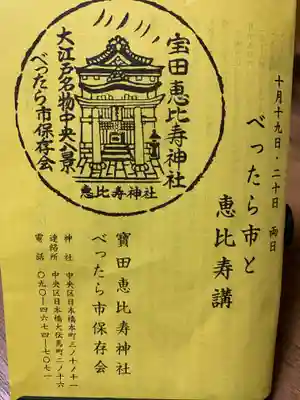 十月十九日・二十日 両日
べったら市と
恵比寿講
宝田恵比寿神社
大江戸名物中央八景
べったら市保存会
恵比寿神社
寶田恵比寿神社
べったら市保存会
神社 中央区日本橋本町三ノ十ノ十一
連絡所 中央区日本橋大伝馬町二ノ十六
電話 〇九〇ー四六七四ー七〇七一